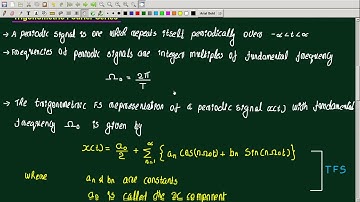 Trigonometric Fourier Series
→ A periodic signal is one which repeats itself periodically over -∞<t<∞
→ Frequencies of periodic signals are integer multiples of fundamental frequency
Ω₀ = 2π/T
→ The trigonometric FS representation of a periodic signal x(t) with fundamental
frequency Ω₀ is given by
x(t) = a₀/2 + Σ_{n=1}^{∞} { aₙ Cos(nΩ₀t) + bₙ Sin(nΩ₀t) }
TFS
where aₙ & bₙ are constants
a₀ is called the DC component